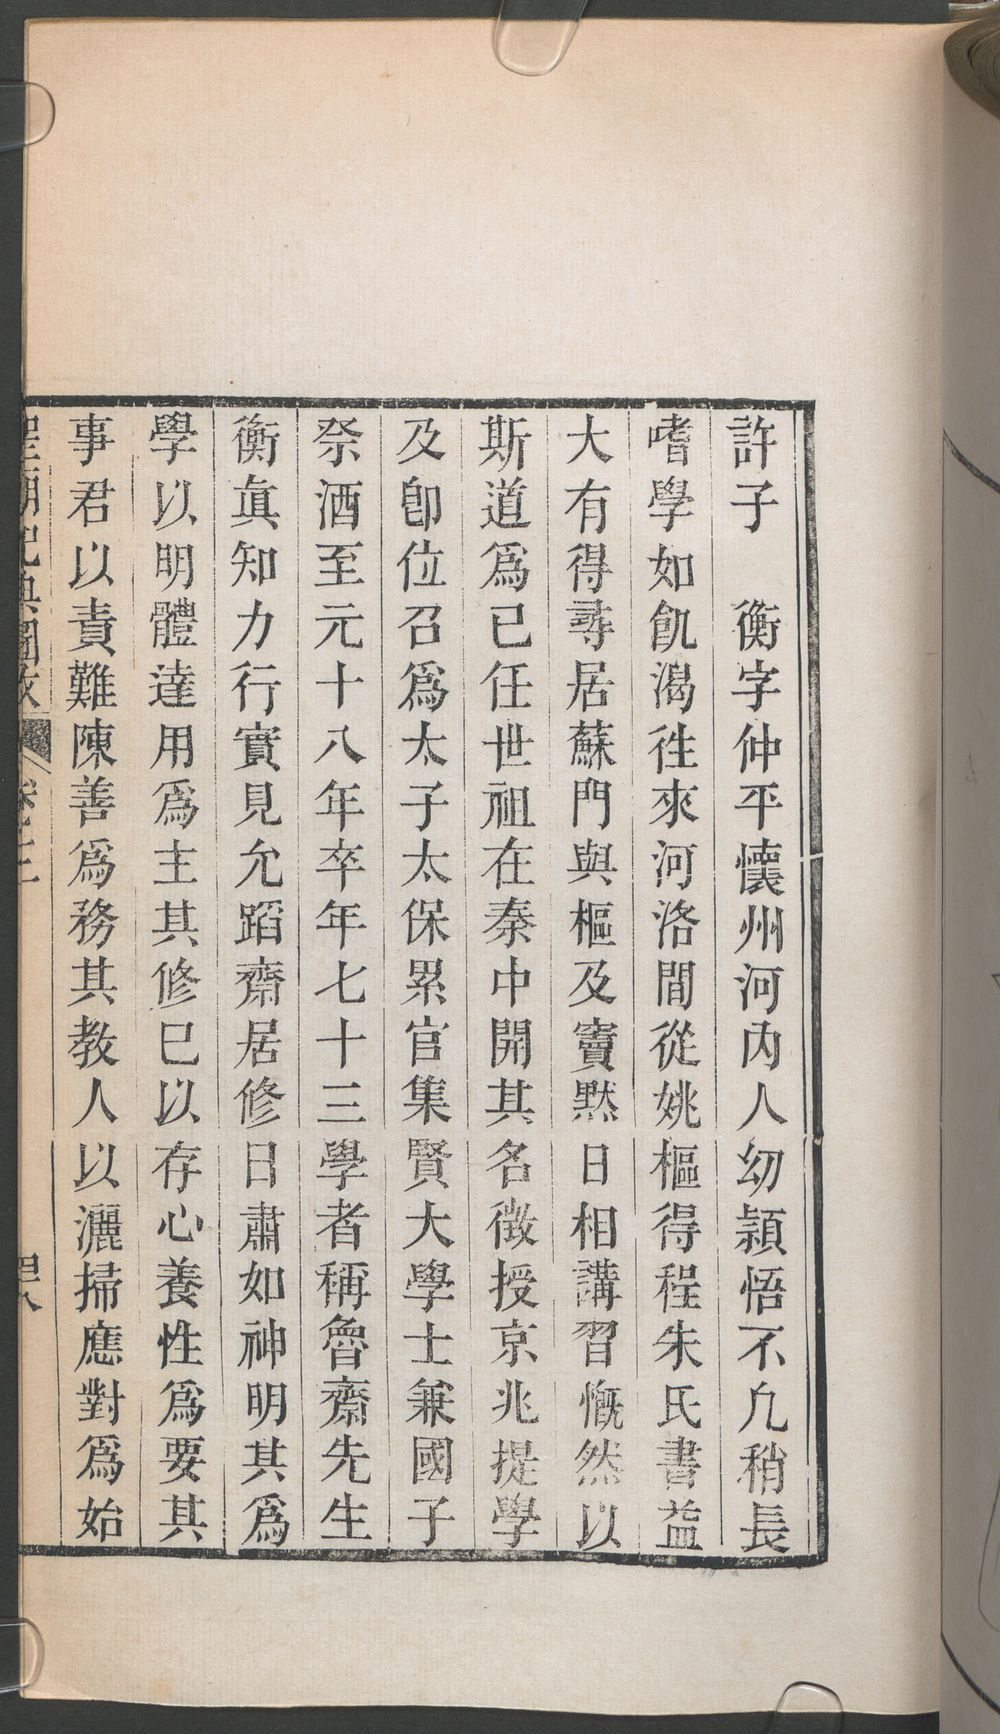 許子　衡字仲平懷州河內人幼穎悟不凡稍長
嗜學如飢渴往來河洛間從姚樞得程朱氏書益
大有得尋居蘇門與樞及竇默日相講習慨然以
斯道爲已任世祖在秦中開其名徵授京兆提學
及卽位召爲太子太保累官集賢大學士兼國子
祭酒至元十八年卒年七十三學者稱魯齋先生
衡眞知力行實見允蹈齋居修日肅如神明其爲
學以明體達用爲主其修巳以存心養性爲要其
事君以責難陳善爲務其教人以灑掃應對爲始
聖廟祀典圖攷 卷三 四八